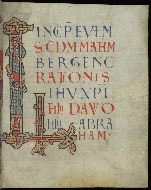 INCP EVEM
SCDM MATHM
LIBER GENE
RATIONIS
IHV XPI
filii DAVID
filii ABRA
HAM